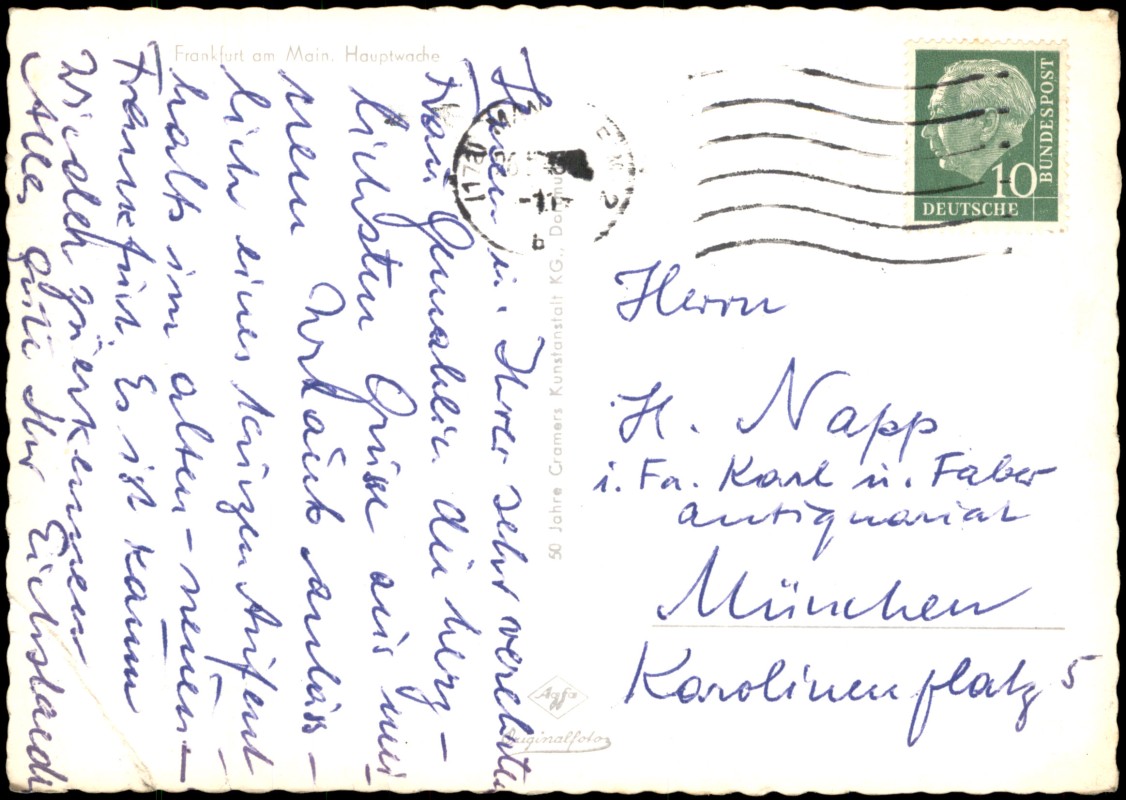 Frankfurt am Main. Hauptwache
Ihnen u. Ihrer sehr verehrten
Frau Gemahlin die herz-
lichsten Grüsse aus mei-
nem Urlaub anläss-
lich eines kurzen Aufent
halts im alten-neuen-
Frankfurt. Es ist kaum
wieder zuerkennen
Alles Gute Ihr
50 Jahre Cramers Kunstanstalt KG., Dortmund
Agfa
Originalfoto
10
DEUTSCHE
BUNDESPOST
Herrn
H. Napp
i. Fa. Karl u. Faber
Antiquariat
München
Karolinenplatz 5